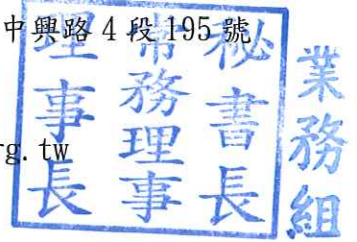 中興路4段195號
rg.tw
秘書長
常務理事
理事長
業務組